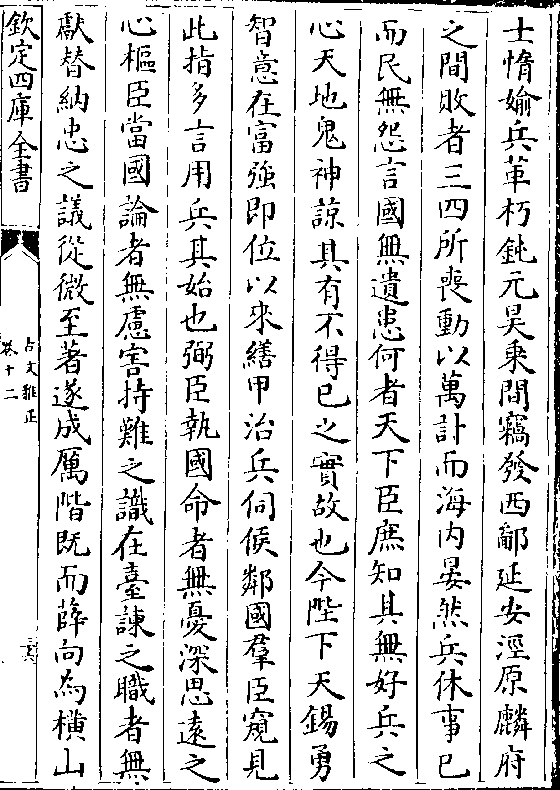 士惰媮兵革朽鈍元昊乗間竊發西鄙延安涇原麟府
之間敗者三四所喪動以萬計而海内晏然兵休事已
而民無怨言國無遺患何者天下臣庶知其無好兵之
心天地鬼神諒其有不得已之實故也今陛下天錫勇
智意在富強即位以來繕甲治兵伺候鄰國羣臣窺見
此指多言用兵其始也弼臣執國命者無憂深思遠之
心樞臣當國論者無慮害持難之識在臺諫之職者無
獻替納忠之議從微至著遂成厲階既而薛向為横山
欽定四庫全書
古文雅正
卷十二
三六